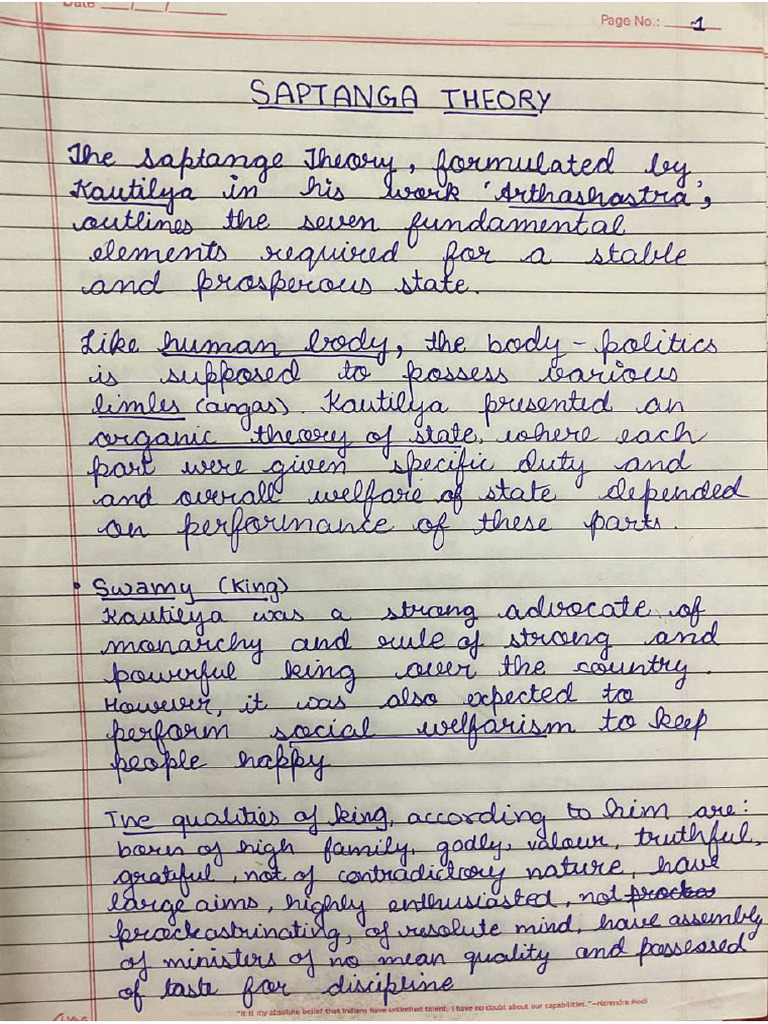 Date __/__/__
Page No.: 1
SAPTANGA THEORY
The saptange Theory, formulated by
Kautilya in his work 'Arthashastra',
outlines the seven fundamental
elements required for a stable
and prosperous state.
Like human body, the body-politics
is supposed to possess various
limles (angas). Kautilya presented an
organic theory of state, where each
part were given specific duty and
and overall welfare of state depended
on performance of these parts.
• Swamy (King)
Kautilya was a strong advocate of
monarchy and rule of strong and
powerful king over the country.
However, it was also expected to
perform social welfarism to keep
people happy
The qualities of king, according to him are:
born of high family, godly, valour, truthful,
grateful, not of contradictory nature, have
large aims, highly enthusiasted, not
prockastrinating, of resolute mind, have assembly
of ministers of no mean quality and possessed
of taste for discipline
"It is my absolute belief that Indians have unlimited talent. I have no doubt about our capabilities."—Narendra Modi